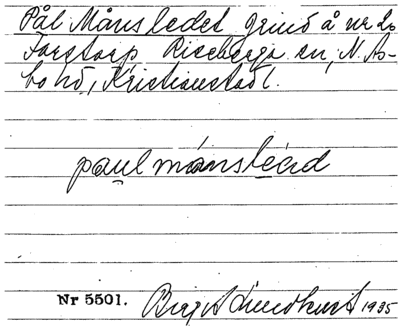 Pål Månsledet grind å nr 20
Torstorp Riseberga sn, N. Ås-
bo hd, Kristianstad l.
paul mánsléäd
Nr 5501.
Birgit Lundkvist 1935